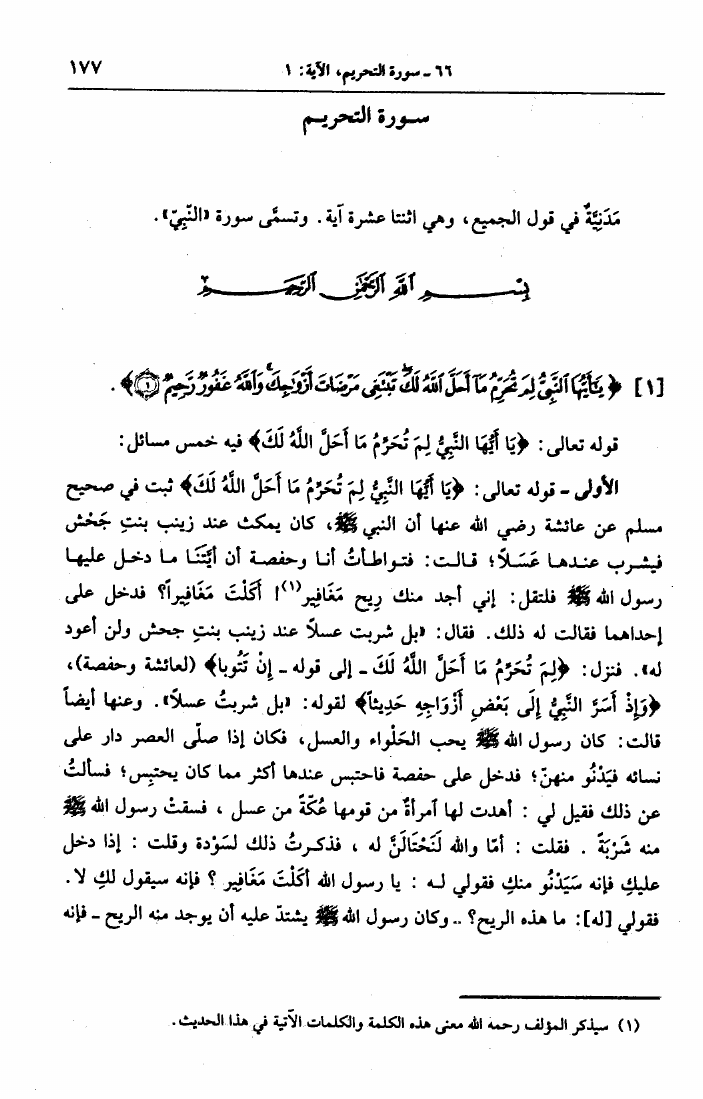 ٦٦ - سورة التحريم، الآية: ١ ١٧٧
سورة التحريم
مَدَنِيَّةٌ في قول الجميع، وهي اثنتا عشرة آية. وتسمَّى سورة «النّبِيّ».
بِسْمِ اللَّهِ الرَّحْمَٰنِ الرَّحِيمِ
[١] ﴿يَٰٓأَيُّهَا ٱلنَّبِىُّ لِمَ تُحَرِّمُ مَآ أَحَلَّ ٱللَّهُ لَكَۖ تَبْتَغِى مَرْضَاتَ أَزْوَٰجِكَۚ وَٱللَّهُ غَفُورٌ رَّحِيمٌ ١﴾.
قوله تعالى: ﴿يَا أَيُّهَا النَّبِيُّ لِمَ تُحَرِّمُ مَا أَحَلَّ اللَّهُ لَكَ﴾ فيه خمس مسائل:
الأولى - قوله تعالى: ﴿يَا أَيُّهَا النَّبِيُّ لِمَ تُحَرِّمُ مَا أَحَلَّ اللَّهُ لَكَ﴾ ثبت في صحيح
مسلم عن عائشة رضي الله عنها أن النبي ﷺ، كان يمكث عند زينب بنتِ جَحْش
فيشرب عندها عَسَلاً؛ قالت: فتواطأتُ أنا وحفصة أن أيَّتَنا ما دخل عليها
رسول الله ﷺ فلتقل: إني أجد منك رِيح مَغَافِير(١)! أَكَلْتَ مَغَافِيراً؟ فدخل على
إحداهما فقالت له ذلك. فقال: «بل شربت عسلاً عند زينب بنتِ جحش ولن أعود
له». فنزل: ﴿لِمَ تُحَرِّمُ مَا أَحَلَّ اللَّهُ لَكَ - إلى قوله - إِنْ تَتُوبا﴾ (لعائشة وحفصة)،
﴿وَإِذْ أَسَرَّ النَّبِيُّ إِلَى بَعْضِ أَزْوَاجِهِ حَدِيثاً﴾ لقوله: «بل شربتُ عسلاً». وعنها أيضاً
قالت: كان رسول الله ﷺ يحب الحَلْواء والعسل، فكان إذا صلّى العصر دار على
نسائه فيَدْنُو منهنّ؛ فدخل على حفصة فاحتبس عندها أكثر مما كان يحتبِس؛ فسألتُ
عن ذلك فقيل لي : أهدت لها ٱمرأةٌ من قومها عُكّةً من عسل ، فسقتْ رسول الله ﷺ
منه شَرْبَةً . فقلت : أمَا والله لَنَحْتَالَنَّ له ، فذكرتُ ذلك لسَوْدة وقلت : إذا دخل
عليكِ فإنه سَيَدْنُو منكِ فقولي له : يا رسول الله أكَلْتَ مَغَافِير ؟ فإنه سيقول لكِ لا.
فقولي [له]: ما هذه الريح؟ .. وكان رسول الله ﷺ يشتدّ عليه أن يوجد منه الريح - فإنه
(١) سيذكر المؤلف رحمه الله معنى هذه الكلمة والكلمات الآتية في هذا الحديث.